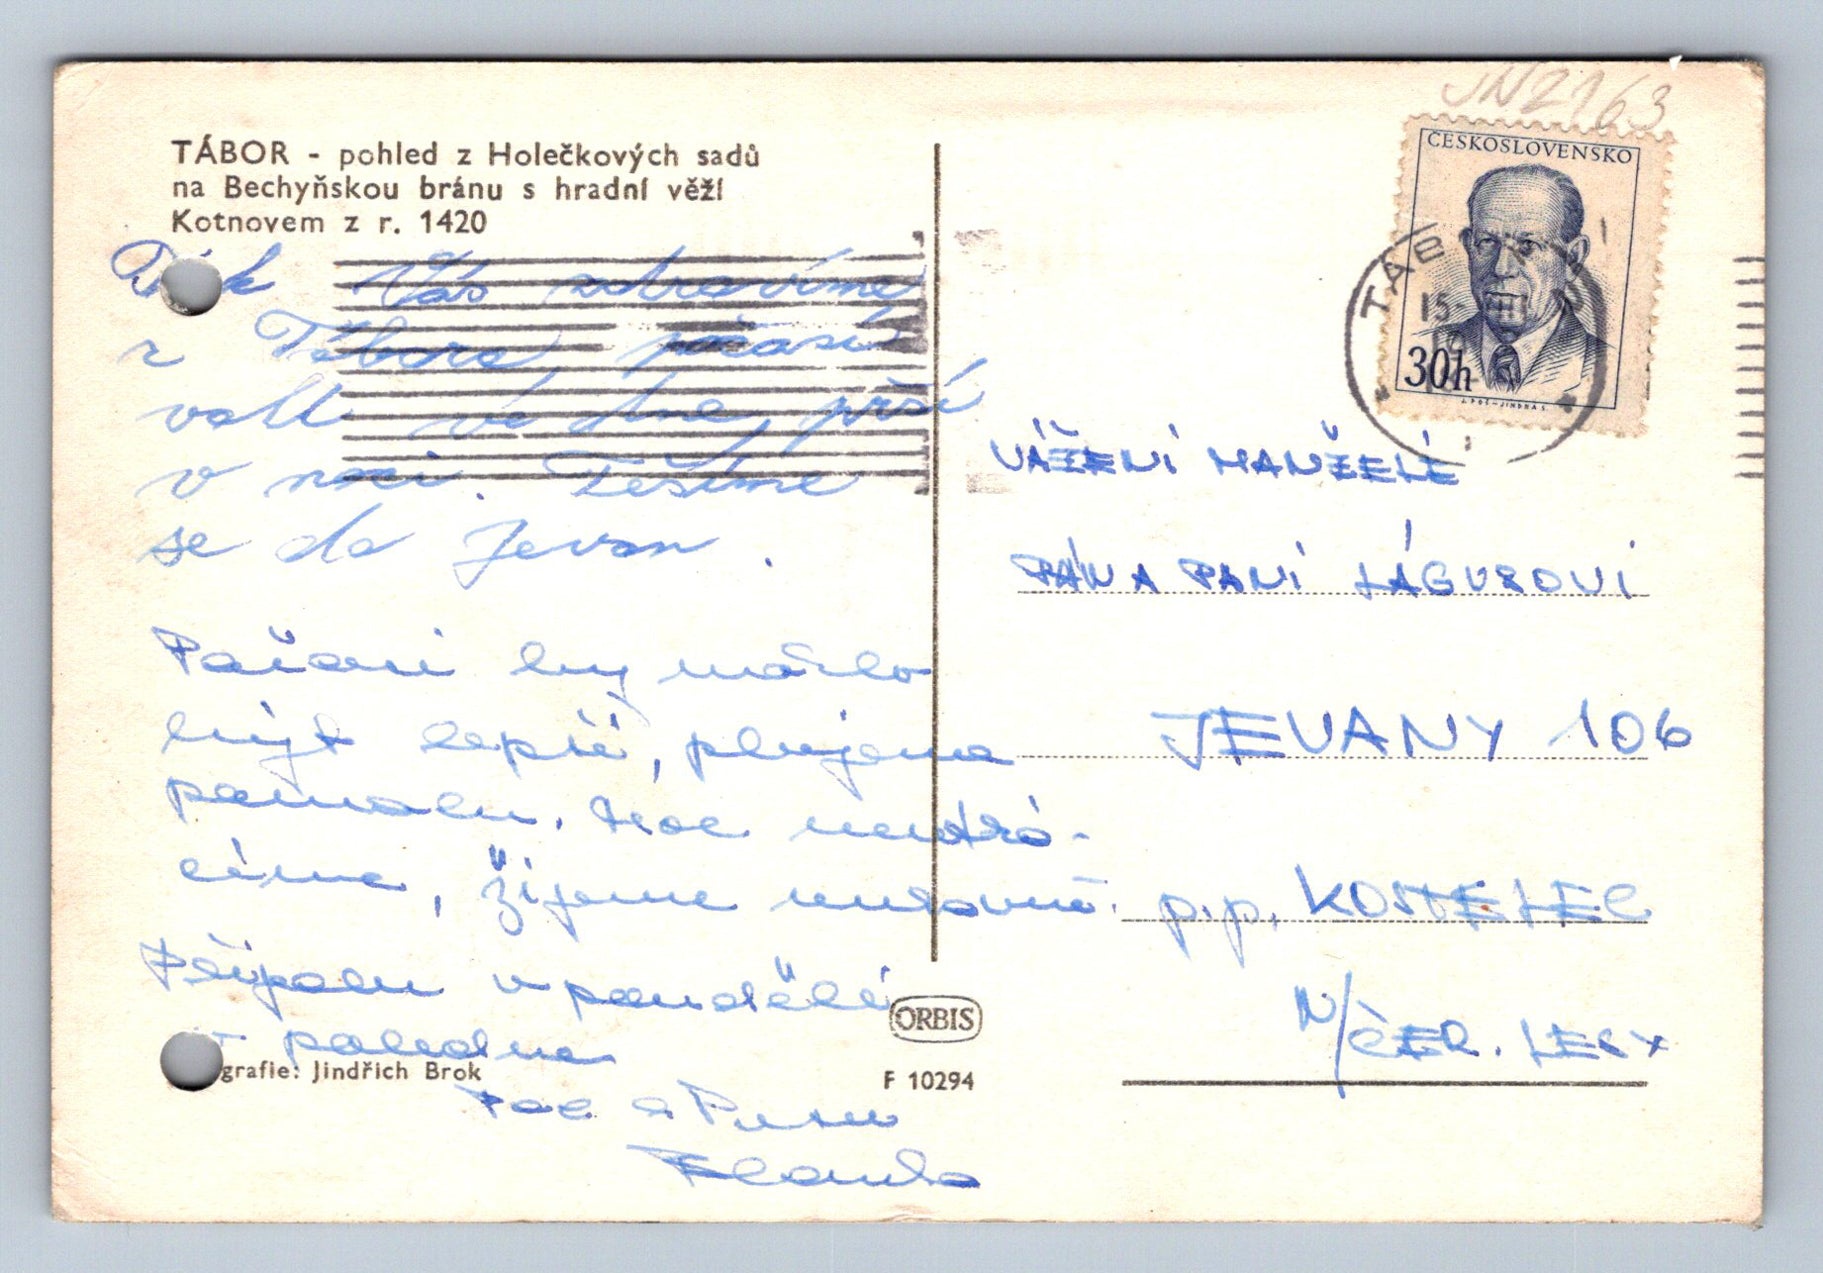 TÁBOR - pohled z Holečkových sadů
na Bechyňskou bránu s hradní věží
Kotnovem z r. 1420
Vás zdravíme
z Tábora, počasí
ve dne, prší
v noci. Těšíme
se do Jevan.
Počasí by mohlo
být lepší, plujeme
pomalu, moc neutrá-
címe, žijeme mravně.
Připlou v pondělí
poledne
a
Blanka
grafie: Jindřich Brok
ORBIS
F 10294
JN2163
ČESKOSLOVENSKO
30h
TÁBOR 1
15-
VÁŽENÍ MANŽELÉ
PÁN A PANÍ LÁGUROVI
JEVANY 106
p.p. KOSTELEC
N/ČER. LESY